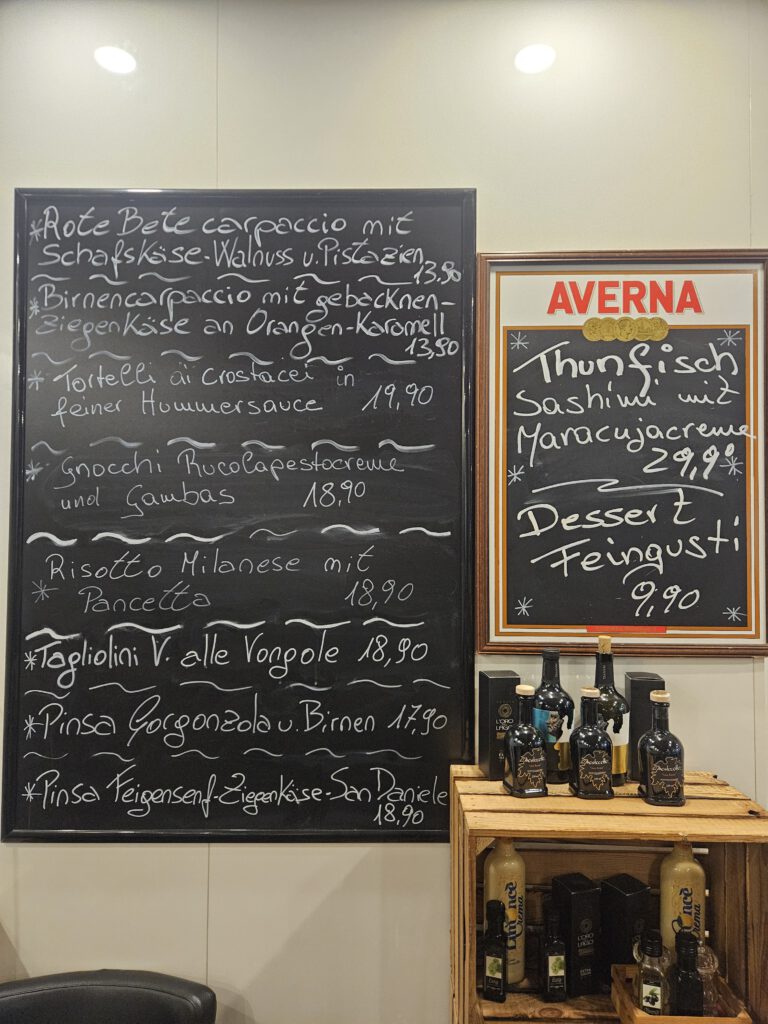 *Rote Bete carpaccio mit
Schafskäse-Walnuss u. Pistazien
13,90
*Birnencarpaccio mit gebacknen-
Ziegenkäse an Orangen-Karamell
13,90
* Tortelli ai Crostacei in
feiner Hummersauce 19,90
* Gnocchi Rucolapestocreme
und Gambas 18,90
Risotto Milanese mit
* Pancetta 18,90
*Tagliolini V. alle Vongole 18,90
*Pinsa Gorgonzola u. Birnen 17,90
*Pinsa Feigensenf-Ziegenkäse-San Daniele
18,90
AVERNA
Thunfisch
Sashimi mit
Maracujacreme
29,90
Dessert
Feingusti
9,90
L'ORO
LAGO
L'ORO
LAGO
Crema
Crema